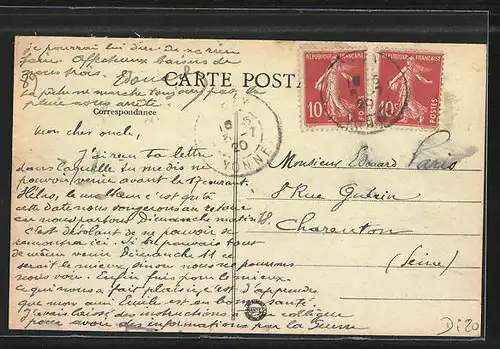 je pourrai lui dire de ne rien
faire. Affectueux baisers de
nous trois. Edouard
La pêche marche toujours pas, la
pluie nous arrête.
CARTE POSTALE
Correspondance
RÉPUBLIQUE FRANÇAISE
10c
POSTES
RÉPUBLIQUE FRANÇAISE
10c
POSTES
YONNE
Mon cher oncle,
J'ai reçu ta lettre
dans laquelle tu me dis ne
pouvoir venir avant le courant.
Hélas, le malheur c'est qu'à
cette date nous songerons au retour
car nous partons Dimanche matin 18.
C'est désolant de ne pouvoir se
rencontrer ici. Si tu pouvais tout
de même venir Dimanche 11 ce
serait le mieux, sinon nous ne pourrons
nous voir. Enfin fais pour le mieux.
Ce qui nous a fait plaisir, c'est d'apprendre
que mon ami Emile est en bonne santé.
J'avais laissé des instructions à un collègue
pour avoir des informations par la
Monsieur Edouard
Paris
8 Rue
Charenton
(Seine)
Di 20